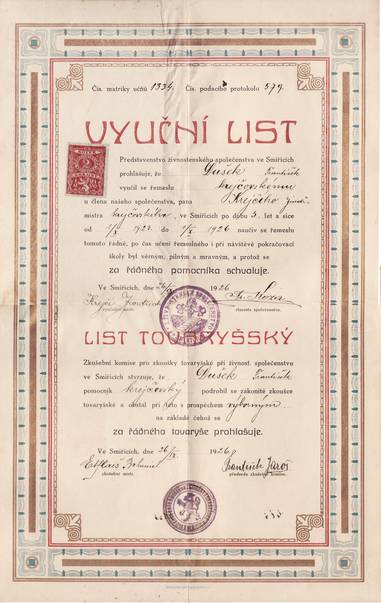 Čís. matriky učňů 1334. Čís. podacího protokolu 579.
VYUČNÍ LIST
Představenstvo živnostenského společenstva ve Smiřicích
prohlašuje, že Dušek František
vyučil se řemeslu krejčovskému
u člena našeho společenstva, pana Krejčího
mistra krejčovského, ve Smiřicích po dobu 3. let a sice
od 1922 do 1926 naučiv se řemeslu
tomuto řádně, po čas učení řemeslného i při návštěvě pokračovací
školy byl věrným, pilným a mravným, a protož se
za řádného pomocníka schvaluje.
Ve Smiřicích, dne 26/ 1926
LIST TOVARYŠSKÝ
Zkušební komise pro zkoušky tovaryšské při živnost. společenstvu
ve Smiřicích stvrzuje, že Dušek František
pomocník krejčovský podrobil se zákonité zkoušce
tovaryšské a obstál při této s prospěchem výborným
na základě čehož se
za řádného tovaryše prohlašuje.
Ve Smiřicích, dne 26/ 1926
František Jaroš
předseda zkušební komise.